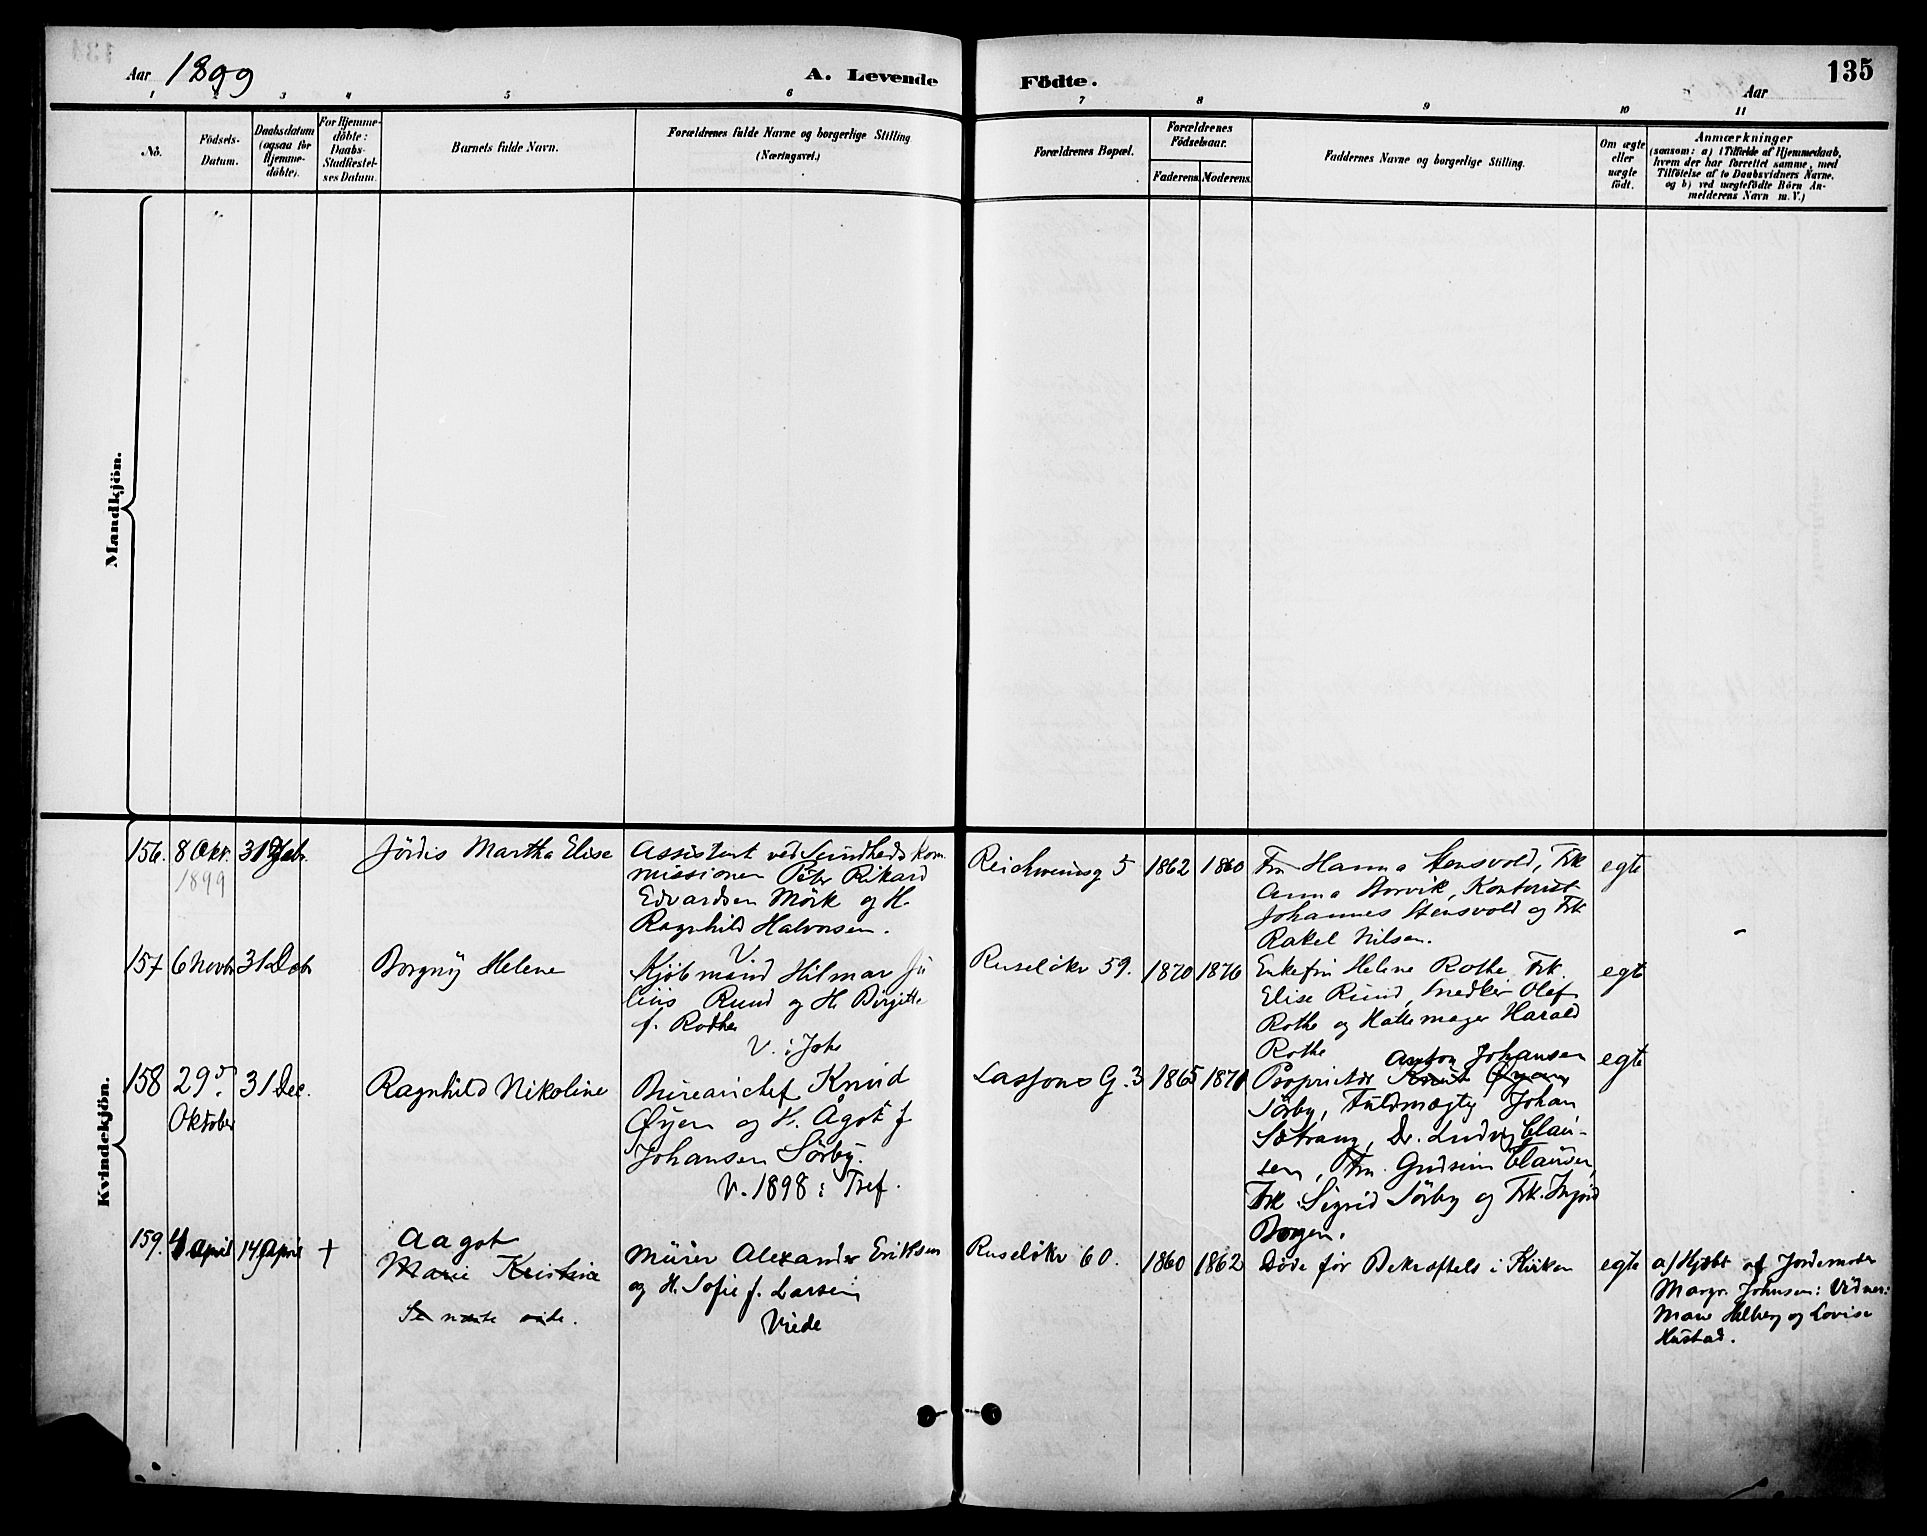 Aar 1899
A. Levende
Födte.
Aar
135
1 2 3 4 5 6 7 8 9 10 11
No.
Födsels-
Datum.
Daabsdatum
(ogsaa for
Hjemme-
döbte).
For Hjemme-
döbte:
Daabs-
Stadfæstel-
ses Datum.
Barnets fulde Navn.
Forældrenes fulde Navne og borgerlige Stilling
(Næringsvei.)
Forældrenes Bopæl.
Forældrenes
Födselsaar.
Faderens. Moderens.
Faddernes Navne og borgerlige Stilling.
Om ægte
eller
uægte
födt.
Anmærkninger
(saasom: a) i Tilfælde af Hjemmedaab,
hvem der har forrettet samme, med
Tilföielse af to Daabsvidners Navne.
og b) ved uægtefödte Börn An-
melderens Navn m. V.)
Mandkjön.
Kvindekjön.
156.
8 Okr.
1899
31 Debr.
Jördis Martha Elise
Assistent ved Sundheds kom
missionen Peter Rikard
Edvardsen Mörk og H.
Ragnhild Halvorsen.
V.
Reichweinsg 5
1862
1860
Fru Hanna Stensvold, Frk
Anna Storvik, Kontorist
Johannes Stensvold og Frk
Rakel Nilsen.
egte
157
6 Novbr
31 Debr
Borgny Helene
Kjöbmand Hilmar Ju
lius Ruud og H. Birgitte
f. Rothe
V. i Joh
Ruselökv 59.
1870
1876
Enkefru Helene Rothe, Frk.
Elise Ruud, Snedker Olef
Rothe og Hattemager Harald
Rothe
egte
158
29de
Oktober
31 Dec.
Ragnhild Nikoline
Bureauchef Knud
Øyen og H. Ågot f
Johansen Sörby.
V. 1898 i Tref.
Lassons G. 3
1865
1871
Anton Johansen
Proprietær Knut Øyen
Sörby, Fuldmægtig Johan
Sætrang, Dr. Ludvig Clau-
sen, Fru Gudrun Clausen,
Frk. Sigrid Sörby og Frk.
Borgen.
egte
159.
4 April
14 April
+
Aagot
Marie Kristine
Se næste side.
Murer Alexander Eriksen
og H. Sofie f. Larsen
Viede
Ruselökv 60.
1860
1862
Döde för Bekræftels i Kirken
egte
a/ Hjdbt af Jordemoder
Margr. Johnsen: Vidner:
Marie Helberg og Lovise
Hustad.